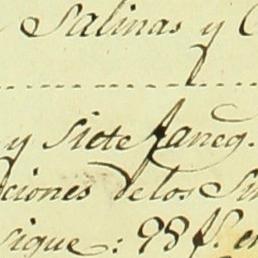 Salinas y
y siete faneg.
ciones de los
sigue: 98 f.